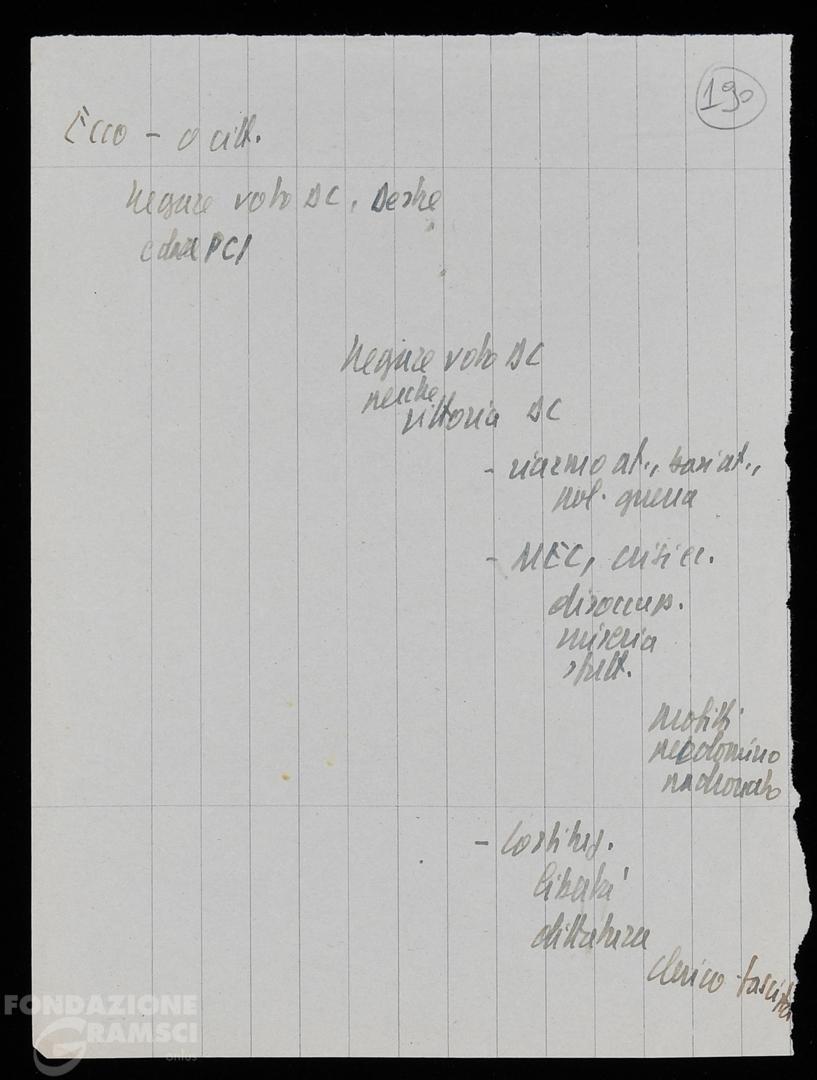 190
Ecco - o citt.
Negare voto DC, Destre
e dare PCI
Negare voto DC
perche
vittoria DC
- riarmo at., basi at.,
pol. guerra
- MEC, crisi ec.
disoccup.
miseria
sfrutt.
profitti
predominio
padronato
- Costituz.
libertà
dittatura
clerico-fascista
FONDAZIONE
GRAMSCI
onlus